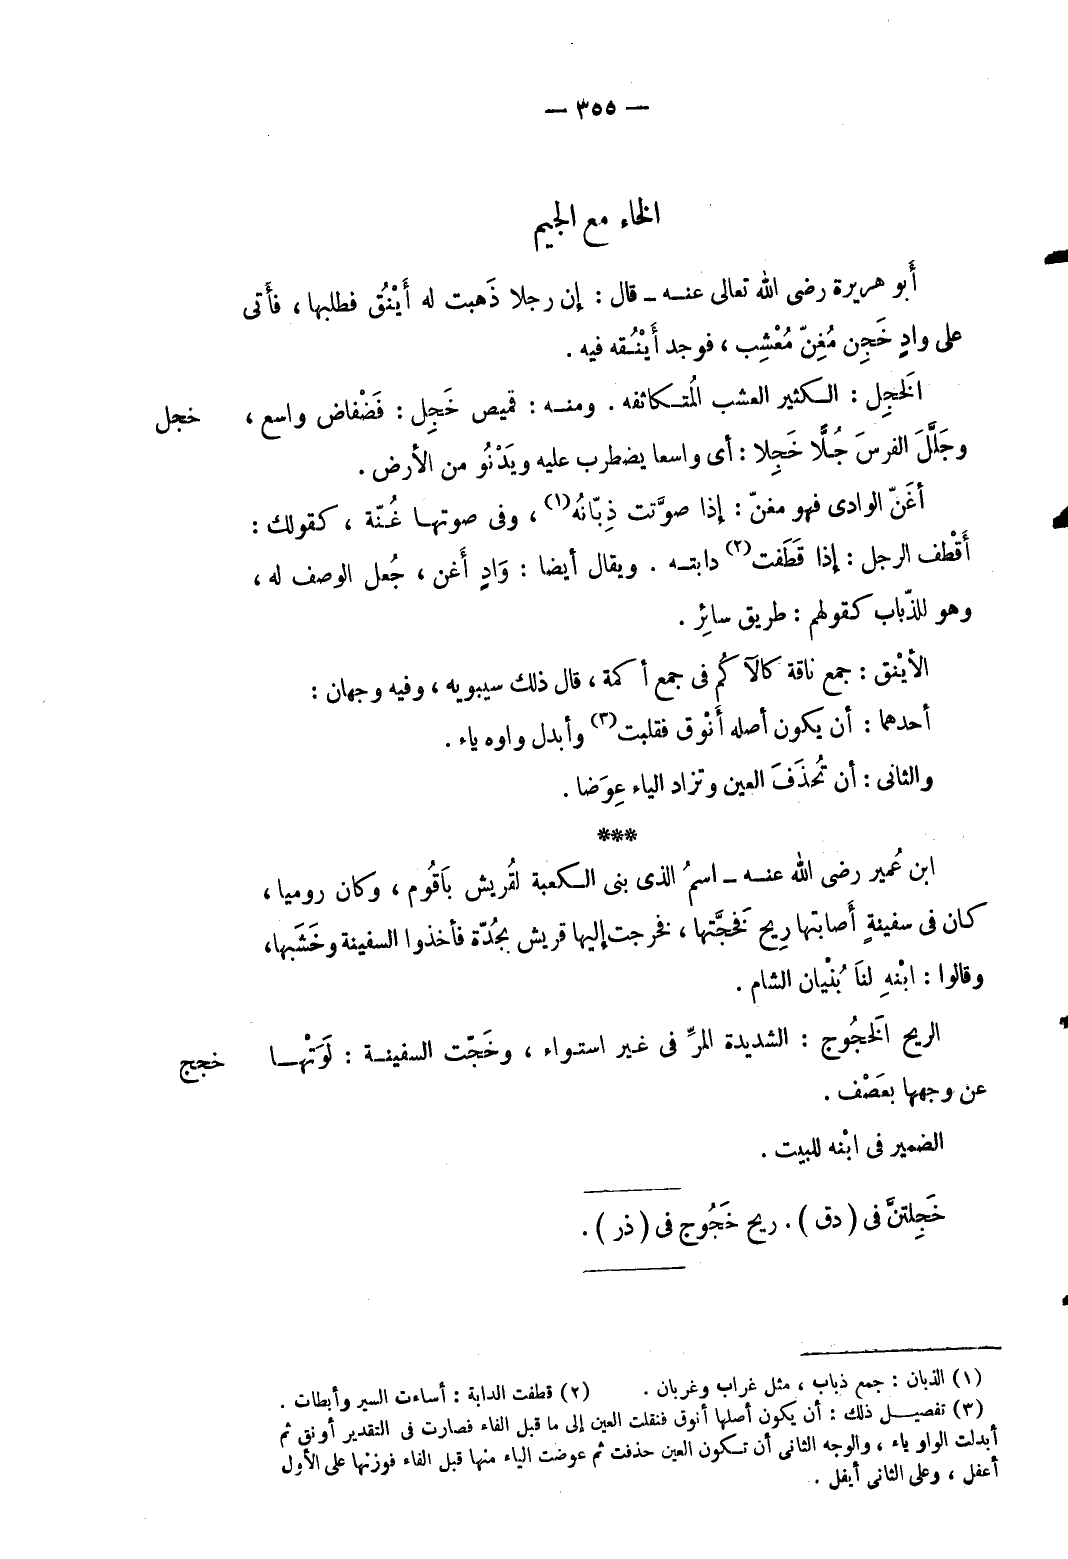 — ٣٥٥ —
الخاء مع الجيم
أبو هريرة رضى الله تعالى عنـه ـ قال : إن رجلا ذَهبت له أَيْنُق فطلبها ، فأَتى
على وادٍ خَجِن مُغِنّ مُعْشِب ، فوجد أَيْنُـقه فيه .
الَخجِل : الـكثير العشب الُمتـكاثفه . ومنـه : قميص خَجِل : فَضْفاض واسع ، خجل
وجَلَّلَ الفرسَ جُلًّا خَجِلا : أى واسعا يضطرب عليه ويَدْنُو من الأرض .
أغَنّ الوادى فهو مغنّ : إذا صوَّتت ذِبّانُه(١) ، وفى صوتهـا غُـنّة ، كقولك :
أَقْطف الرجل : إذا قَطَفت(٢) دابتـه . ويقال أيضا : وَادٍ أَغن ، جُعل الوصف له ،
وهو للذّباب كقولهم : طريق سائِر .
الأيْنق : جمع ناقة كالآكُم فى جمع أكمة ، قال ذلك سيبويه ، وفيه وجهان :
أحدهما : أن يكون أصله أَنْوق فقلبت(٣) وأبدل واوه ياء .
والثانى : أن تُحذَفَ العين وتزاد الياء عِوَضا .
***
ابن عُمير رضى الله عنـه ـ اسمُ الذى بنى الـكعبة لقُريش بَاقُوم ، وكان روميا ،
كان فى سفينةٍ أَصابتها رِيح فخجَّتها ، فخرجت إليها قريش بجُدّة فأخذوا السفينة وخَشَبها،
وقالوا : ابْنهِ لنَا بُنْيان الشام .
الريح الَخجُوج : الشديدة المرِّ فى غـير استـواء ، وخَجّت السفينـة : لَوَتْهـا خجج
عن وجهها بعَصْف .
الضمير فى ابْنه للبيت .
خَجِلتنَّ فى ( دق ) . ريح خَجُوج فى ( ذر ) .
(١) الذبان : جمع ذباب ، مثل غراب وغربان . (٢) قطفت الدابة : أساءت السير وأبطات .
(٣) تفصيـل ذلك : أن يكون أصلها أنوق فنقلت العين إلى ما قبل الفاء فصارت فى التقدير أونق ثم
أبدلت الواو ياء ، والوجه الثانى أن تـكون العين حذفت ثم عوضت الياء منها قبل الفاء فوزنها على الأول
أعفل ، وعلى الثانى أيفل .